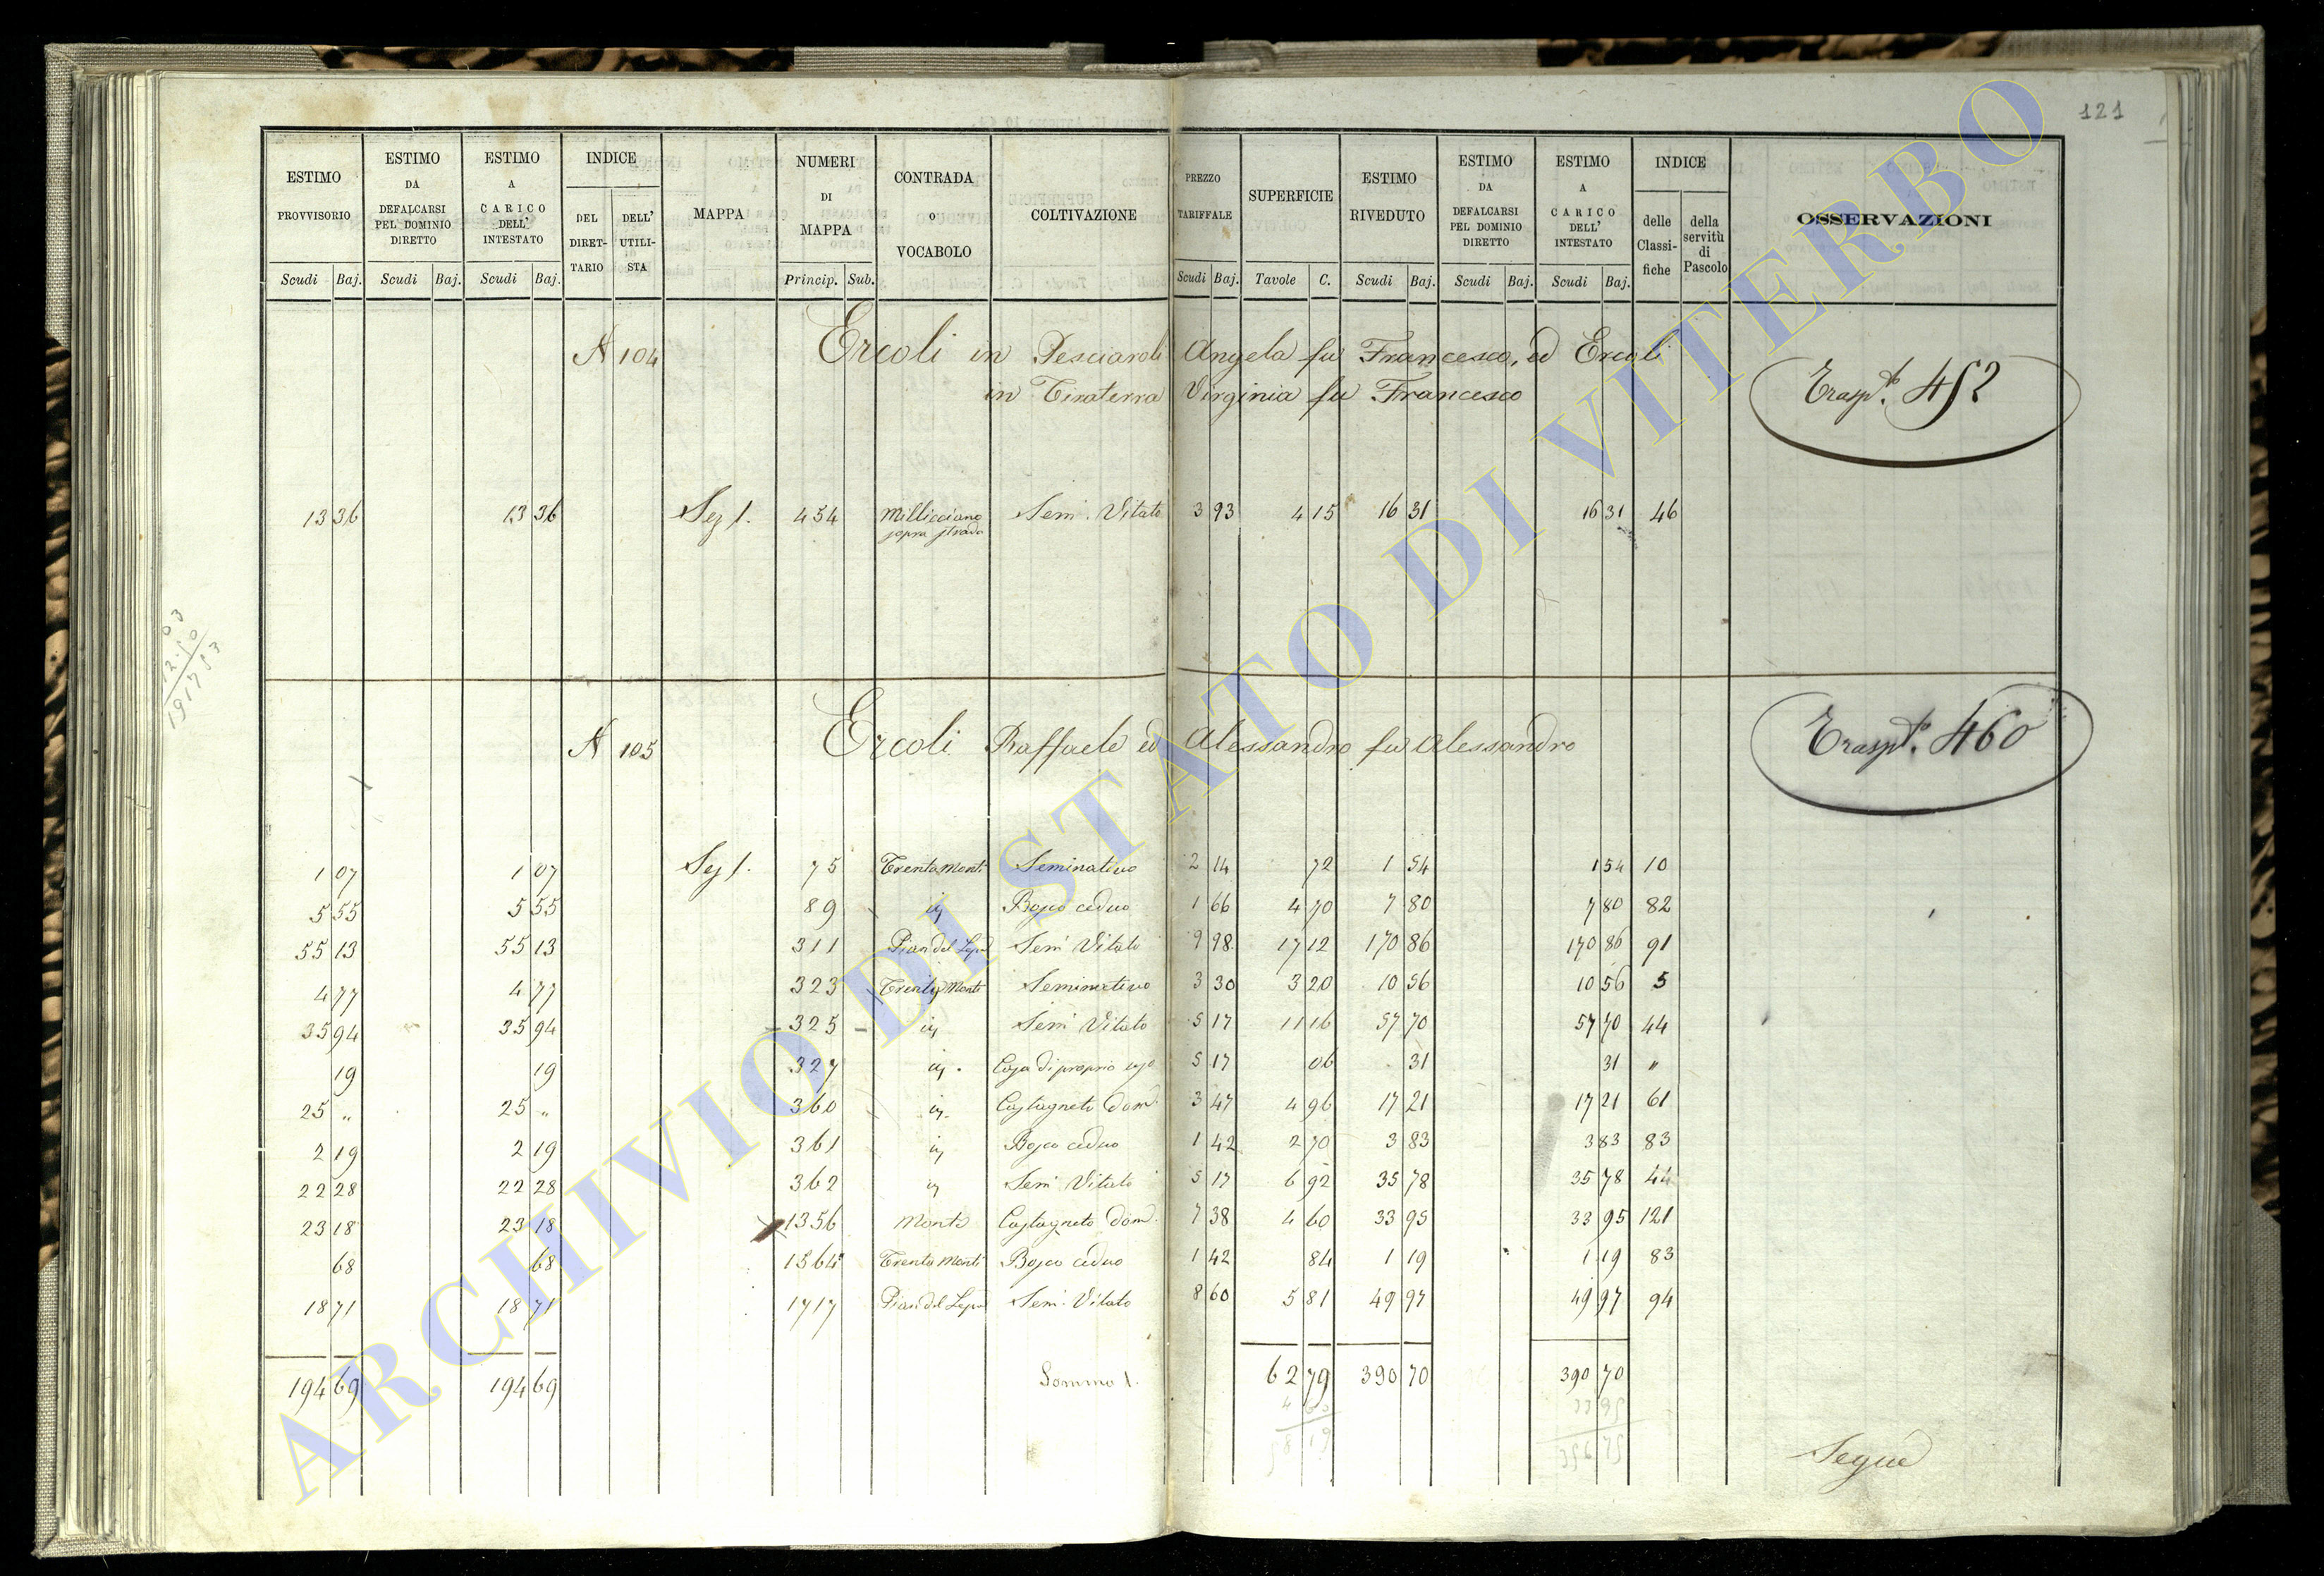 121
ESTIMO PROVVISORIO | ESTIMO DA DEFALCARSI PEL DOMINIO DIRETTO | ESTIMO A CARICO DELL' INTESTATO | INDICE DEL DIRETTARIO | DELL' UTILISTA | MAPPA | NUMERI DI MAPPA | CONTRADA O VOCABOLO | COLTIVAZIONE | PREZZO TARIFFALE | SUPERFICIE | ESTIMO RIVEDUTO | ESTIMO DA DEFALCARSI PEL DOMINIO DIRETTO | ESTIMO A CARICO DELL' INTESTATO | INDICE delle Classifiche | della servitù di Pascolo | OSSERVAZIONI
Scudi | Baj. | Scudi | Baj. | Scudi | Baj. | Princip. | Sub. | Scudi | Baj. | Tavole | C. | Scudi | Baj. | Scudi | Baj. | Scudi | Baj.
N 104 Ercoli in Pesciaroli Angela fu Francesco, ed Ercoli
in Tiraterra Virginia fu Francesco
Trasp.to 452
13 36 | 13 36 | Sez 1. | 454 | Millicciano sopra strada | Sem. Vitato | 3 93 | 4 15 | 16 31 | 16 31 | 46
N 105 Ercoli Raffaele ed Alessandro fu Alessandro
Trasp.to 460
1 07 | 1 07 | Sez 1. | 75 | Trenta Monti | Seminativo | 2 14 | 72 | 1 54 | 1 54 | 10
5 55 | 5 55 | 89 | id | Bosco ceduo | 1 66 | 4 70 | 7 80 | 7 80 | 82
55 13 | 55 13 | 311 | Pian del Lepre | Sem Vitato | 9 98 | 17 12 | 170 86 | 170 86 | 91
4 77 | 4 77 | 323 | Trenta Monti | Seminativo | 3 30 | 3 20 | 10 56 | 10 56 | 5
35 94 | 35 94 | 325 | id | Sem Vitato | 5 17 | 11 16 | 57 70 | 57 70 | 44
19 | 19 | 327 | id. | Casa di proprio uso | 5 17 | 06 | 31 | 31 | "
25 " | 25 " | 360 | id. | Castagneto Dom. | 3 47 | 4 96 | 17 21 | 17 21 | 61
2 19 | 2 19 | 361 | id | Bosco ceduo | 1 42 | 2 70 | 3 83 | 3 83 | 83
22 28 | 22 28 | 362 | id | Sem Vitato | 5 17 | 6 92 | 35 78 | 35 78 | 44
23 18 | 23 18 | 1356 | Monti | Castagneto dom. | 7 38 | 4 60 | 33 95 | 33 95 | 121
68 | 68 | 1364 | Trenta Monti | Bosco ceduo | 1 42 | 84 | 1 19 | 1 19 | 83
18 71 | 18 71 | 1717 | Pian del Lepre | Sem. Vitato | 8 60 | 5 81 | 49 97 | 49 97 | 94
194 69 | 194 69 | Somma 1. | 62 79 | 390 70 | 390 70
4 60 | 33 95
58 19 | 356 75
Segue
ARCHIVIO DI STATO DI VITERBO